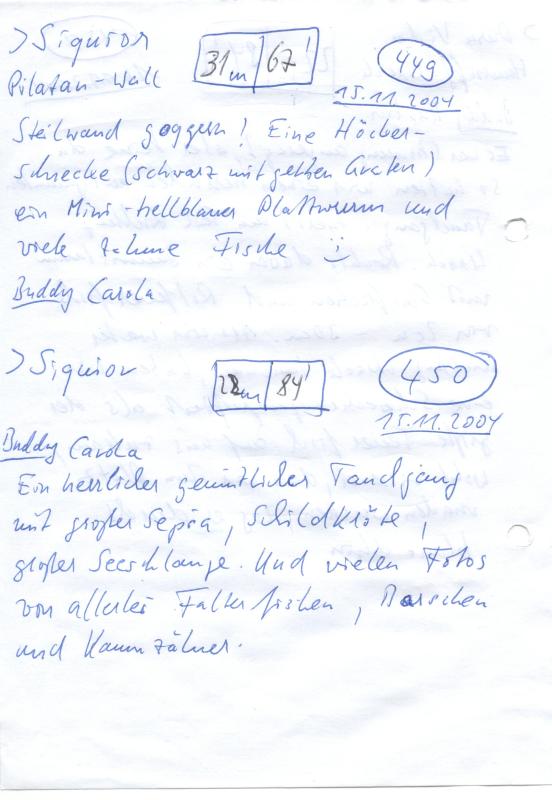 > Siquior 31m 67' 449
Pilatan-Wall 15.11.2004
Steilwand goggern! Eine Höcker-
schnecke (schwarz mit gelben Graten)
ein Mini-hellblauer Plattwurm und
viele zahme Fische :)
Buddy Carola
> Siquior 22m 84' 450
15.11.2004
Buddy Carola
Ein herrlicher gemütlicher Tauchgang
mit großer Sepia, Schildkröte,
großer Seeschlange. Und vielen Fotos
von allerlei Falterfischen, Barschen
und Kammzähner.